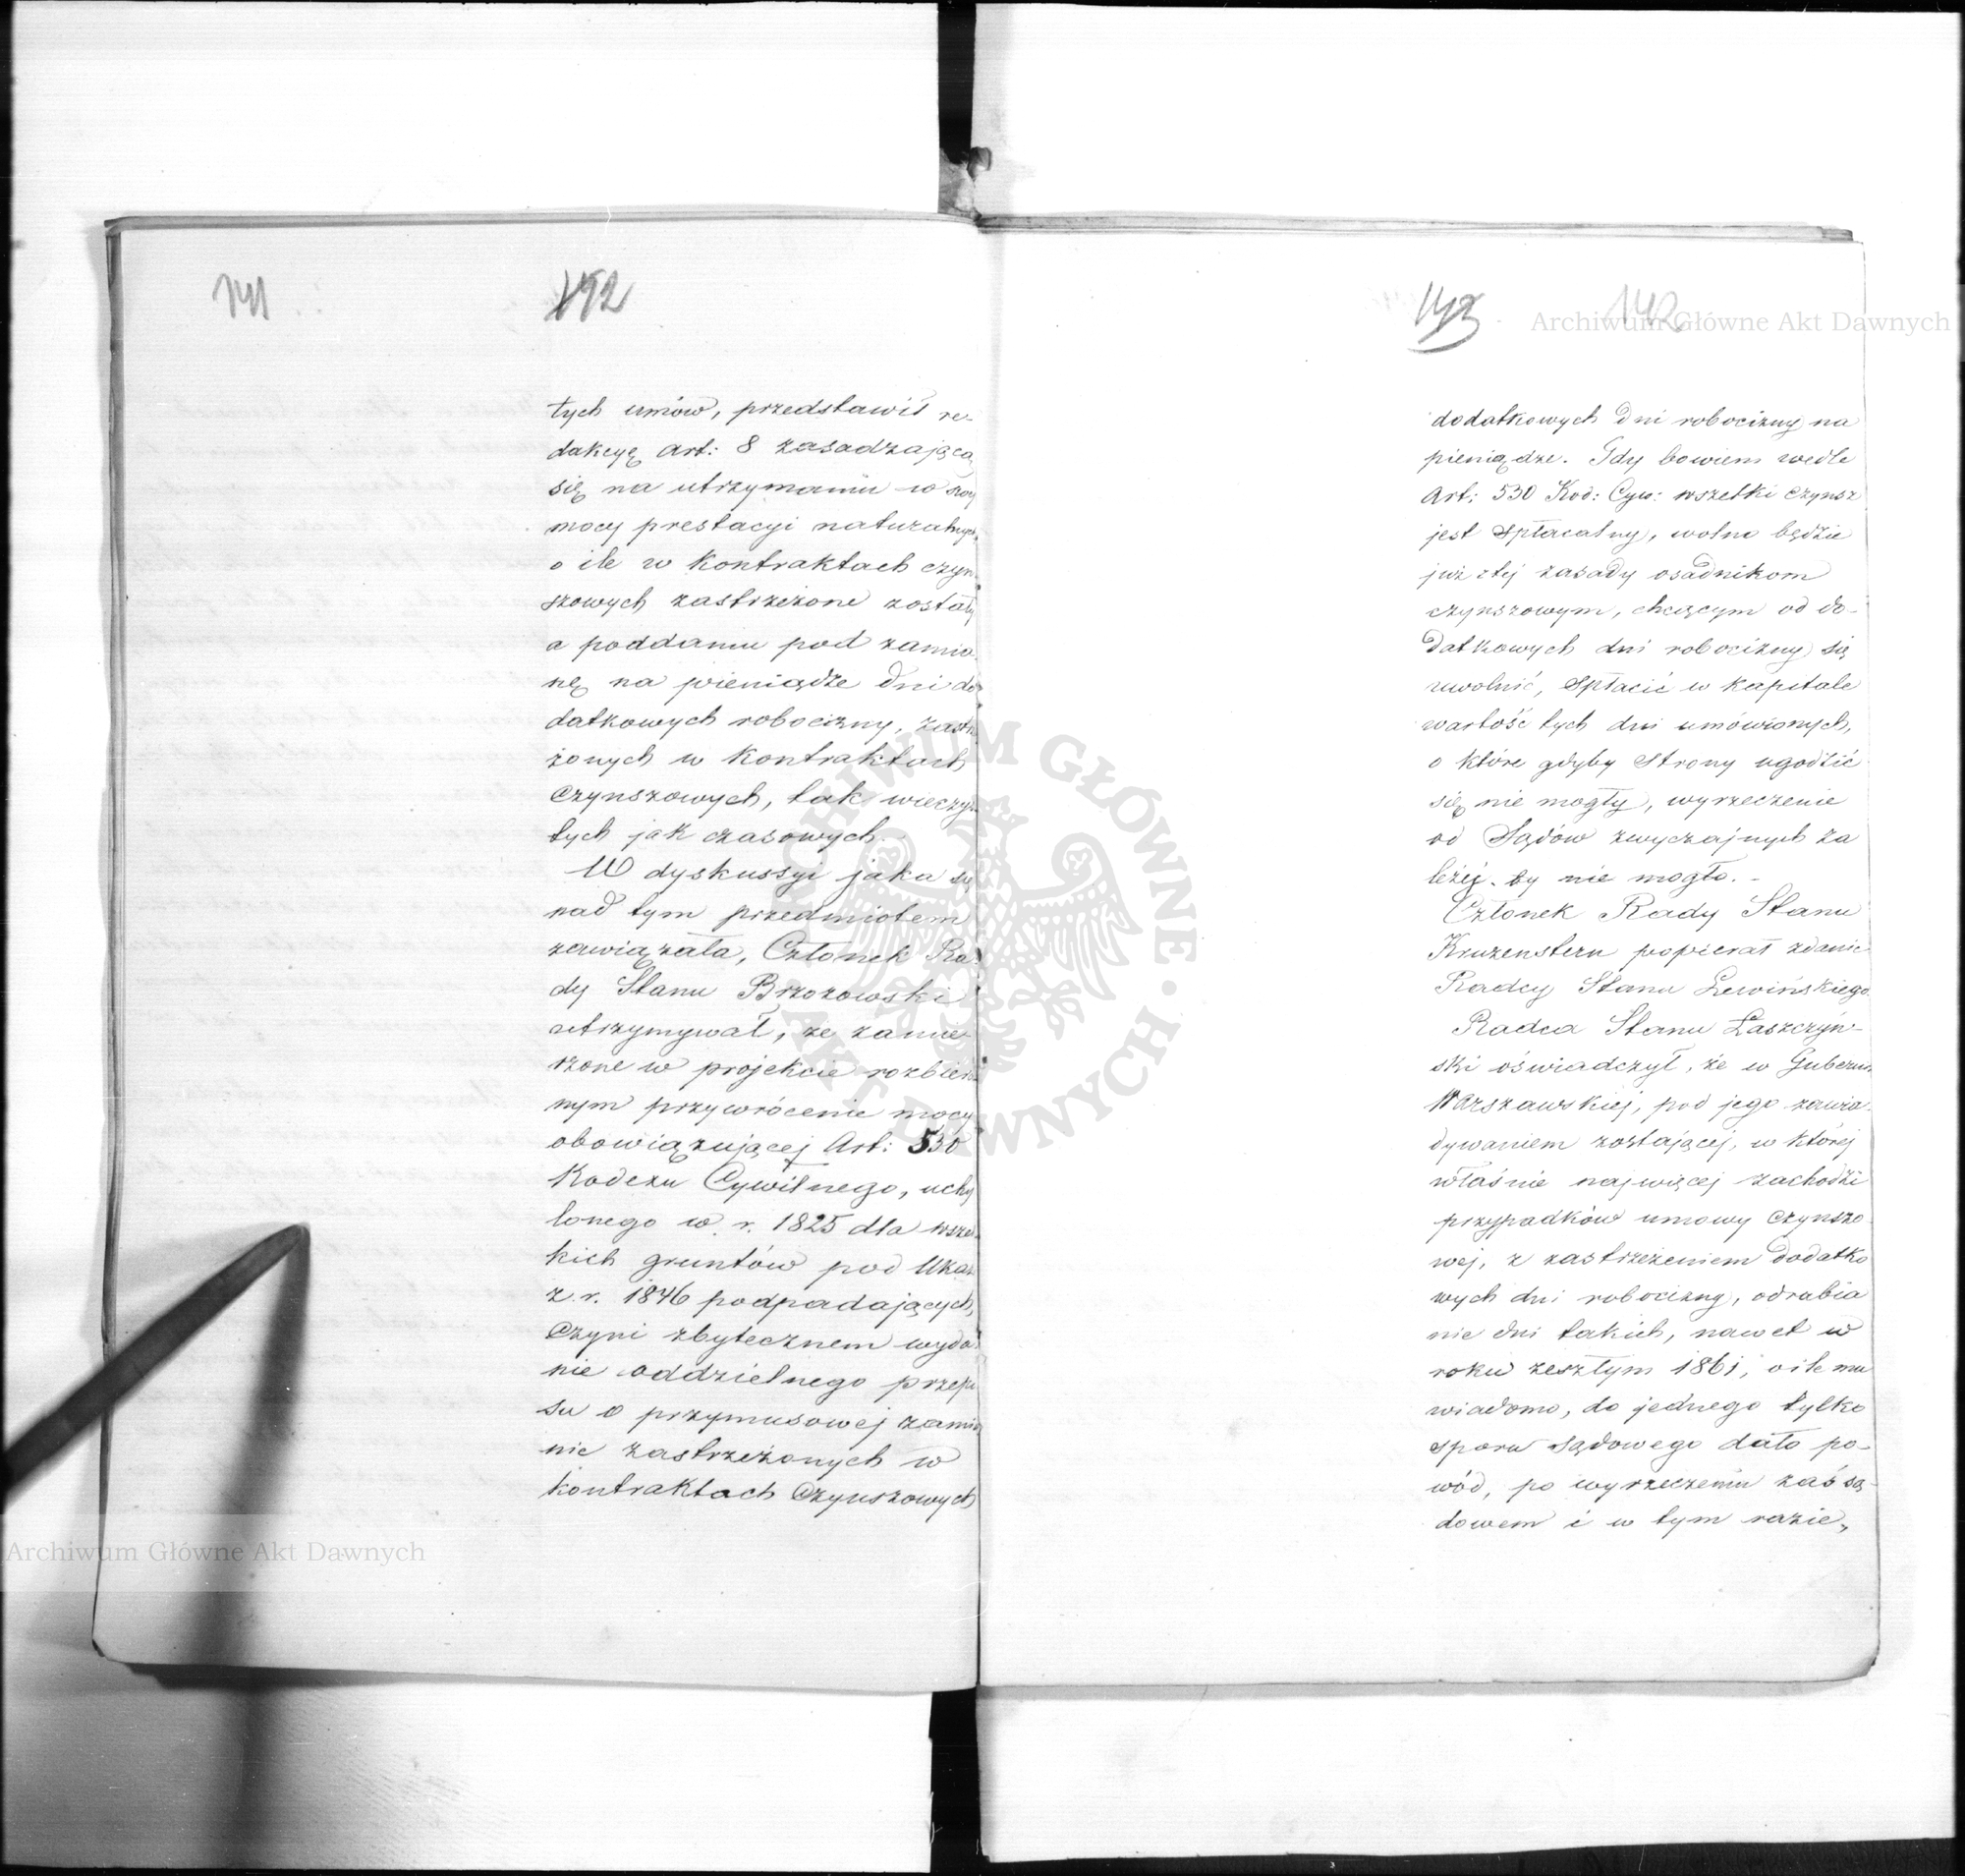 141
192
tych umów, przedstawił re-
dakcyę art: 8 zasadzającą
się na utrzymaniu w swej
mocy prestacyi naturalnych,
o ile w kontraktach czyn-
szowych zastrzeżone zostały
a poddaniu pod zamia-
nę na pieniądze dni do-
datkowych robocizny, zastrze-
żonych w kontraktach
czynszowych, tak wieczys-
tych jak czasowych.
W dyskussyi jaka się
nad tym przedmiotem
zawiązała, Członek Ra-
dy Stanu Brzozowski
utrzymywał, że zamie-
rzone w projekcie rozbiera-
nym przywrócenie mocy
obowiązującej Art: 530
Kodexu Cywilnego, uchy
lonego w r. 1825 dla wszel-
kich gruntów pod Ukaz
z r. 1846 podpadających,
czyni zbytecznem wyda-
nie oddzielnego przepi
su o przymusowej zamia
nie zastrzeżonych w
kontraktach czynszowych
143
142
dodatkowych dni robocizny na
pieniądze. Gdy bowiem wedle
Art: 530 Kod: Cyw: wszelki czynsz
jest spłacalny, wolno będzie
już z tej zasady osadnikom
czynszowym, chcącym od do-
datkowych dni robocizny się
uwolnić, spłacić w kapitale
wartość tych dni umówionych,
o które gdyby strony ugodzić
się nie mogły, wyrzeczenie
od Sądów zwyczajnych za
leżeć by nie mogło.-
Członek Rady Stanu
Kruzenstern popierał zdanie
Radcy Stanu Lewińskiego.
Radca Stanu Łaszczyń-
ski oświadczył, że w Gubernii
Warszawskiej, pod jego zawia-
dywaniem zostającej, w której
właśnie najwięcej zachodzi
przypadków umowy czynszo
wej, z zastrzeżeniem dodatko
wych dni robocizny, odrabia
nie dni takich, nawet w
roku zeszłym 1861, o ile mu
wiadomo, do jednego tylko
sporu sądowego dało po-
wód, po wyrzeczeniu zaś są-
dowem i w tym razie,
Archiwum Główne Akt Dawnych
Archiwum Główne Akt Dawnych
ARCHIWUM GŁÓWNE AKT DAWNYCH